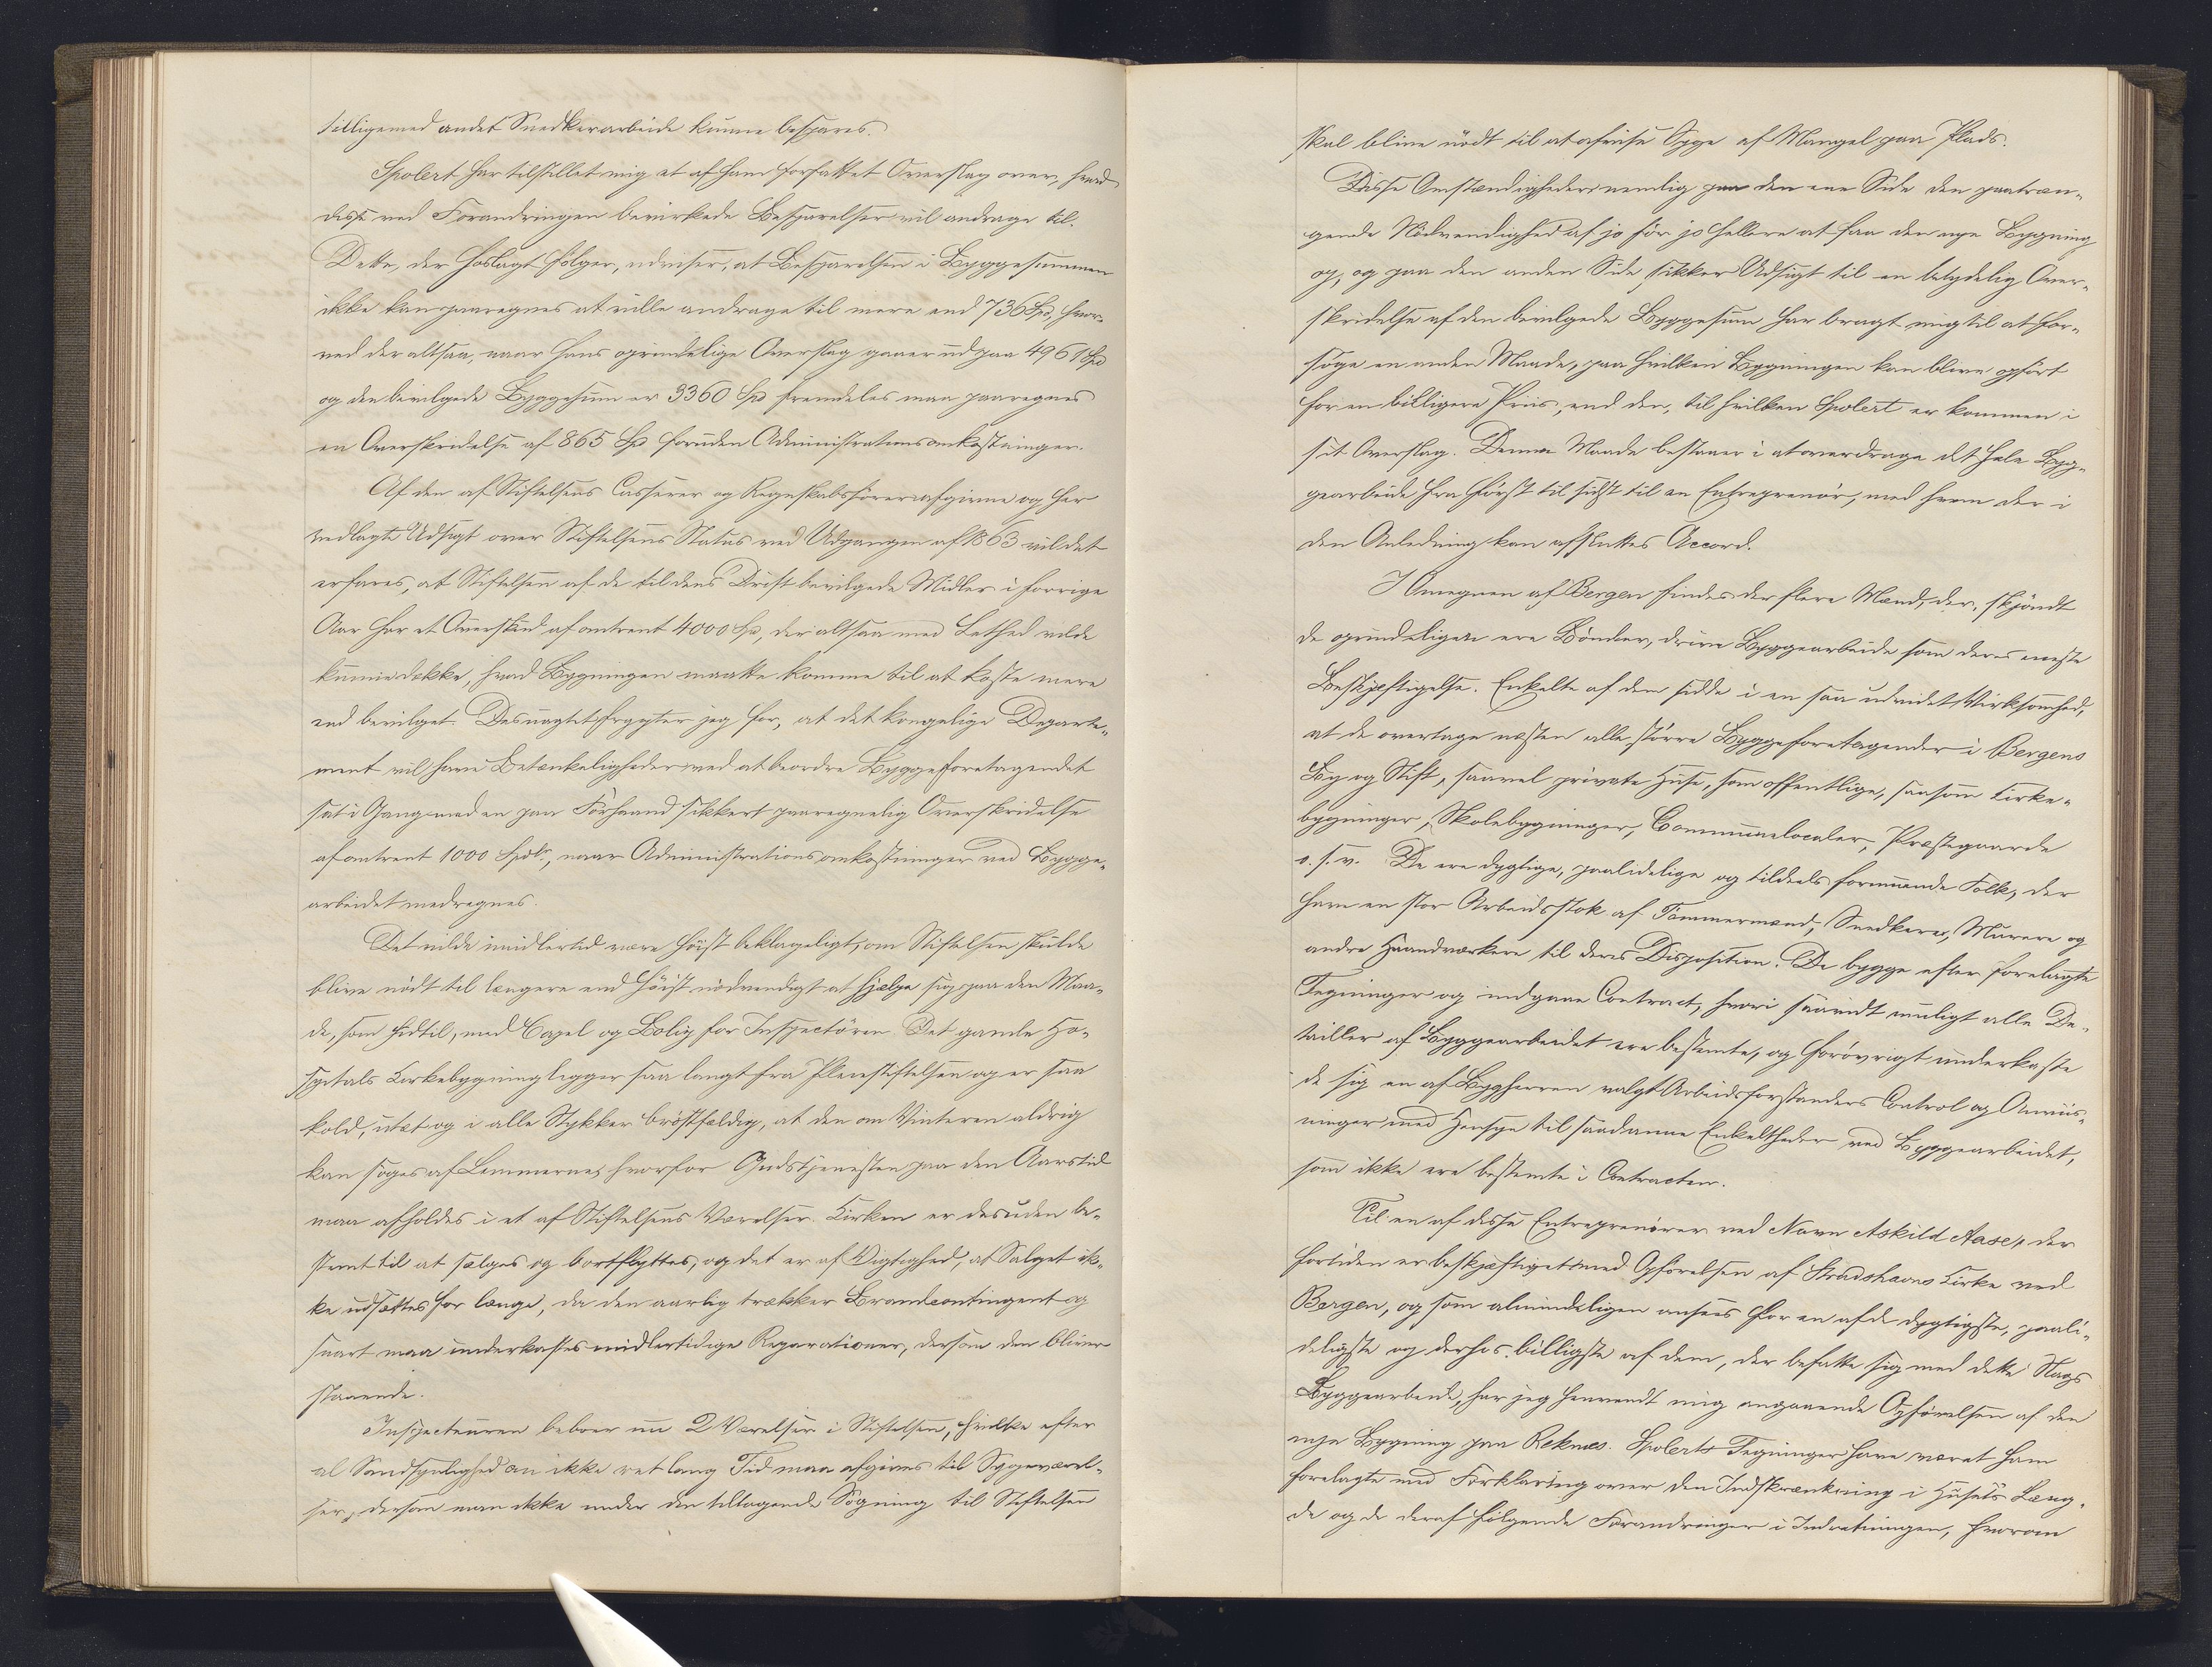 tilligemed andet Snedkerarbeide kunne bespares.
Spolert har tilstillet mig et af ham forfattet Overslag over, hvad
disse ved Forandringen bevirkede Besparelser vil andrage til.
Dette, der hoslagt følger, udviser, at Besparelsen i Byggesummen
ikke kan paaregnes at ville andrage til mere end 736 Spd, hvor-
ved der altsaa, naar hans oprindelige Overslag gaaer ud paa 4961 Spd
og den bevilgede Byggesum er 3360 Spd fremdeles maa paaregnes
en Overskridelse af 865 Spd foruden Administrationsomkostninger.
Af den af Stiftelsens Casserer og Regnskabsfører afgivne og her
vedlagte Udsigt over Stiftelsens Status ved Udgangen af 1863 vil det
erfares, at Stiftelsen af de til dens Drift bevilgede Midler i forrige
Aar har et Overskud af omtrent 4000 Spd, der altsaa med Lethed vilde
kunne dække, hvad Bygningen maatte komme til at koste mere
end bevilget. Desuagtet frygter jeg for, at det kongelige Departe-
ment vil have Betænkeligheder ved at beordre Byggeforetagendet
sat i Gang med en paa Forhaand sikkert paaregnelig Overskridelse
af omtrent 1000 Spdlr, naar Administrationsomkostninger ved Bygge-
arbeidet medregnes.
Det vilde imidlertid være høist beklageligt, om Stiftelsen skulde
blive nødt til længere end høist nødvendigt at hjælpe sig paa den Maa-
de, som hidtil, med Capel og Bolig for Inspectøren. Det gamle Ho-
spitals Kirkebygning ligger saa langt fra Pleiestiftelsen og er saa
kold, utæt og i alle Stykker brøstfældig, at den om Vinteren aldrig
kan søges af Lemmerne, hvorfor Gudstjenesten paa den Aarstid
maa afholdes i et af Stiftelsens Værelser. Kirken er desuden be-
stemt til at sælges og bortflyttes, og det er af Vigtighed, at Salget ik-
ke udsættes for længe, da den aarlig trækker Brandcontingent og
snart maa underkastes midlertidige Reparationer, dersom den bliver
staaende.
Inspecteuren beboer nu 2 Værelser i Stiftelsen, hvilke efter
al Sandsynlighed om ikke ret lang Tid maa afgives til Sygeværel-
ser, dersom man ikke under den tiltagende Søgning til Stiftelsen
skal blive nødt til at afvise Syge af Mangel paa Plads.
Disse Omstændigheder nemlig paa den ene Side den paatræn-
gende Nødvendighed af jo før jo hellere at faa den nye Bygning
op, og paa den anden Side sikker Udsigt til en betydelig Over-
skridelse af den bevilgede Byggesum har bragt mig til at for-
søge en anden Maade, paa hvilken Bygningen kan blive opført
for en billigere Priis, end den, til hvilken Spolert er kommen i
sit Overslag. Denne Maade bestaaer i at overdrage det hele Byg-
gearbeide fra først til sidst til en Entreprenør, med hvem der i
den Anledning kan afsluttes Accord.
I Omegnen af Bergen findes der flere Mænd, der, skjøndt
de oprindeligen ere Bønder, drive Byggearbeide som deres meste
Beskjæftigelse. Enkelte af dem sidde i en saa udvidet Virksomhed,
at de overtage næsten alle større Byggeforetagender i Bergens
By og Stift, saavel private Huse, som offentlige, saasom Kirke-
bygninger, Skolebygninger, Communelocaler, Præstegaarde
o. s. v. De ere dygtige, paalidelige og tildeels formuende Folk, der
have en stor Arbeidsstok af Tømmermænd, Snedkere, Murere og
andre Haandværkere til deres Disposition. De bygge efter forelagte
Tegninger og indgaae Contract, hvori saavidt muligt alle De-
tailler af Byggearbeidet ere bestemte, og forøvrigt underkaste
de sig en af Bygherren valgt Arbeidsforstanders Control og Anviis-
ninger med Hensyn til saadanne Enkeltheder ved Byggearbeidet,
som ikke ere bestemte i Contracten.
Til en af disse Entreprenører ved Navn Askild Aase, der
fortiden er beskjæftiget med Opførelsen af Strudshavns Kirke ved
Bergen, og som almindeligen ansees for en af de dygtigste, paali-
deligste og derhos billigste af dem, der befatte sig med dette Slags
Byggearbeide, har jeg henvendt mig angaaende Opførelsen af den
nye Bygning paa Reknæs. Spolerts Tegninger have været ham
forelagte med Forklaring over den Indskrænkning i Husets Læng-
de og de deraf følgende Forandringer i Indretningen, hvorom